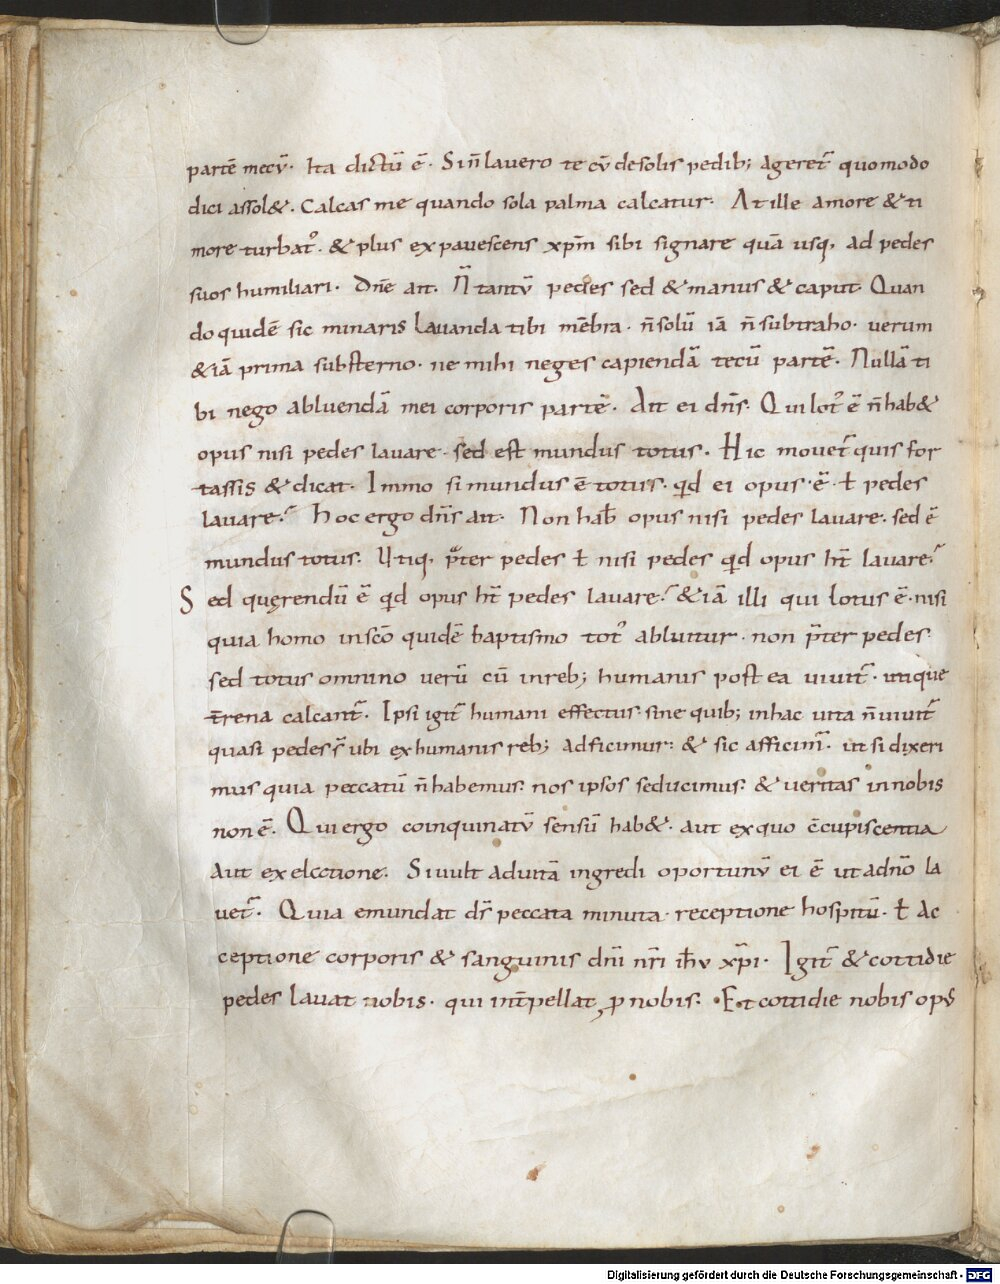 partē mecū. Ita dictū ē. Si n̄ lauero te cū de solis pedib; ageret᷑ quomodo
dici assol&. Calcas me quando sola palma calcatur. At ille amore & ti
more turbat᷒. & plus expauescens xp̄m sibi signare quā usq, ad pedes
suos humiliari. Dn̄e ait. N̄ tantū pedes sed & manus & caput. Quan
do quidē sic minaris lauanda tibi mēbra. n̄ solū iā n̄ subtraho. uerum
&iā prima substerno. ne mihi neges capiendā tecū partē. Nullā ti
bi nego abluendā mei corporis partē. Ait ei dn̄s. Qui lot᷒ ē n̄ hab&
opus nisi pedes lauare. sed est mundus totus. Hic mouet᷑ quis for
tassis & dicat. Immo si mundus ē totus. qd ei opus ē. ł pedes
lauare. Hoc ergo dn̄s ait. Non hab̄ opus nisi pedes lauare. sed ē
mundus totus. Utiq, p̄ter pedes ł nisi pedes qd opus ht̄ lauare
Sed quęrendū ē qd opus ht̄ pedes lauare. &iā illi qui lotus ē. nisi
quia homo in sc̄o quidē baptismo tot᷒ abluitur. non p̄ter pedes
sed totus omnino uerū cū in reb; humanis postea uiuit᷑. utique
t̄rena calcant᷑. Ipsi igit᷑ humani effectus. sine quib; in hac uita n̄ uiuit᷑
quasi pedes s̄ ubi ex humanis reb; adficimur. & sic afficim᷑. ut si dixeri
mus quia peccatū n̄ habemus. nos ipsos seducimus. & ueritas in nobis
non ē. Qui ergo coinquinatū sensū hab&. aut ex quo c̄cupiscentia
Aut ex elcctione. Si uult ad uitā ingredi oportunū ei ē ut ad dn̄o la
uet᷑. Quia emundat dr̄ peccata minuta. receptione hospitū. ł Ac
ceptione corporis & sanguinis dn̄i nr̄i ih̄u xp̄i. Igit᷑ & cottidie
pedes lauat nobis. qui int̄pellat ꝓ nobis. Et cottidie nobis opus
Digitalisierung gefördert durch die Deutsche Forschungsgemeinschaft - DFG